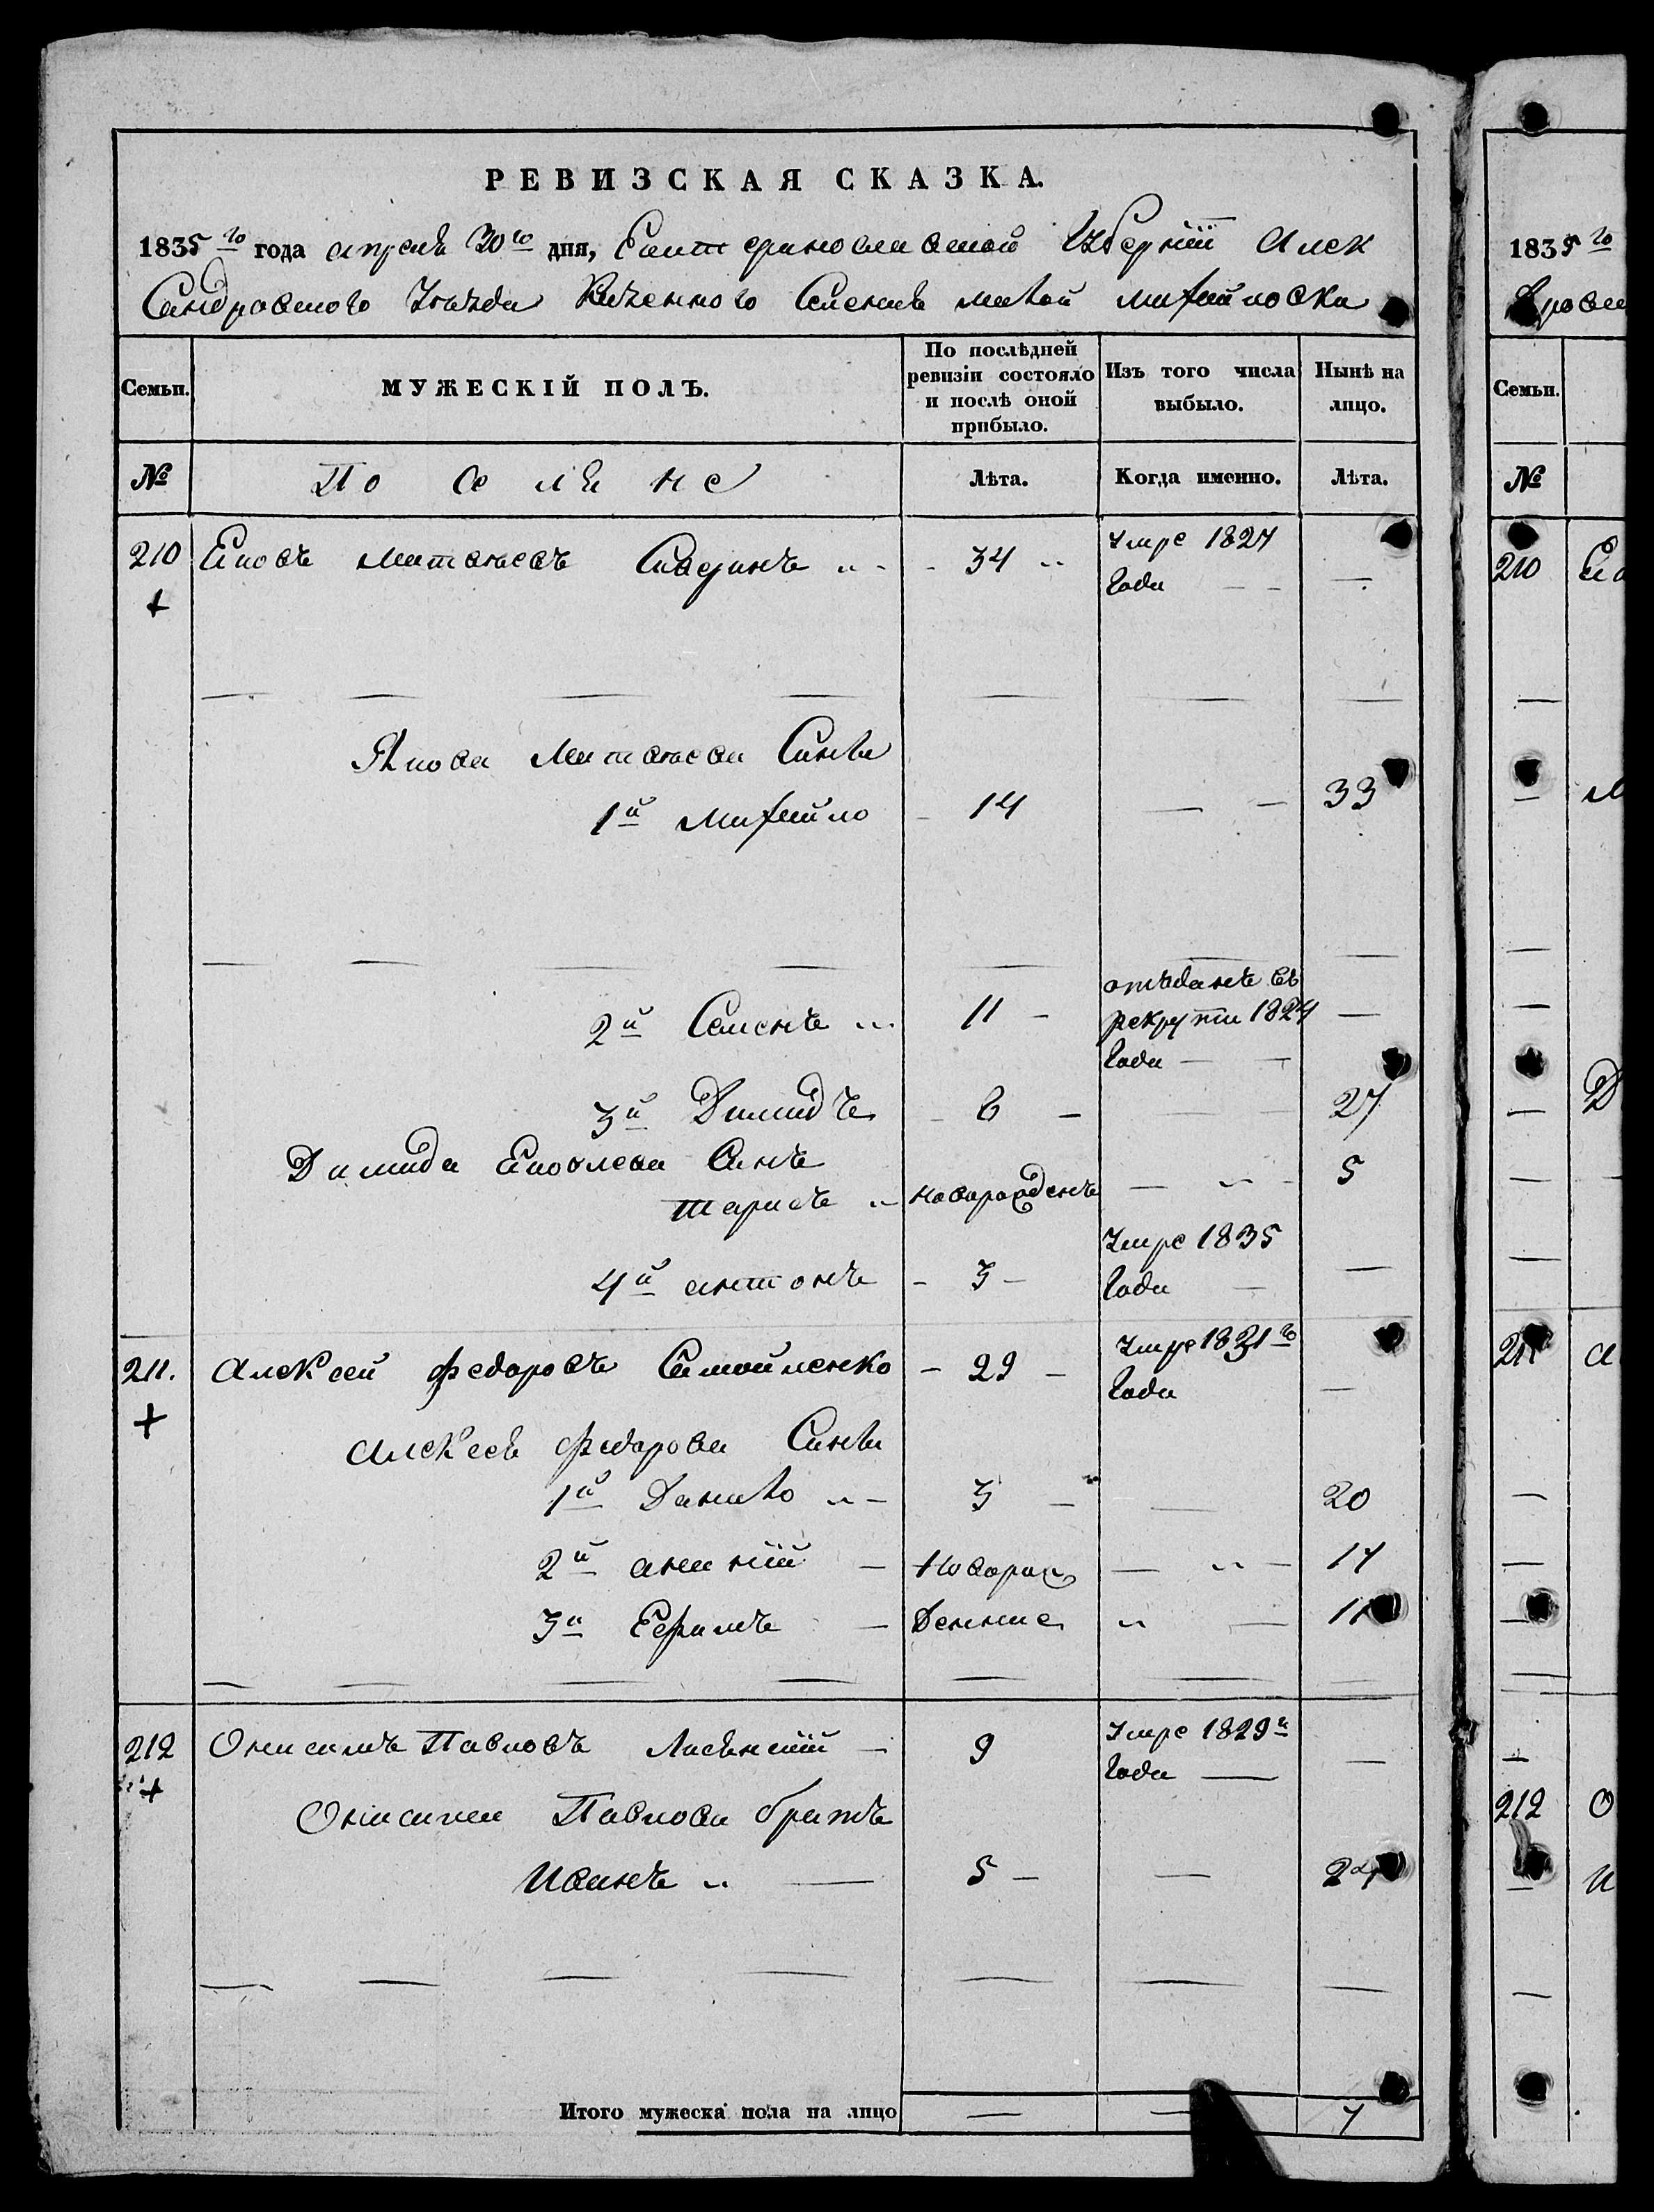 РЕВИЗСКАЯ СКАЗКА.
1835го года апреля 30го дня, Екатеринославской Губернии Алек
сандровского Уезда Казенного Селения малой михайловки
Семьи. МУЖЕСКІЙ ПОЛЪ. По послѣдней ревизіи состояло и послѣ оной прибыло. Изъ того числа выбыло. Нынѣ на лицо.
№ Поселяне Лѣта. Когда именно. Лѣта.
210 Яковъ Матвѣевъ 34 Умре 1827
года
Якова Матвѣева Синвя
1й Михайло 14 33
отъданъ въ
2й Семенъ 11 рекруты 1824
года
3й Дамидъ 6 27
Дамида Яковлева Синъ 5
Тарасъ новорожденъ
Умре 1835
4й антонъ 3 года
211. Алексей Федоровъ Самойленко 29 Умре 1831го
года
Алексея Федорова Синвя
1й Данило 3 20
2й ананій Новорож 14
3й Ефимъ Денние 11
212 Онисимъ Павловъ 9 Умре 1829й
года
Онисима Павлова братъ
Иванъ 5 24
Итого мужеска пола на лицо 7
1835го
Семьи.
№
210
211
212